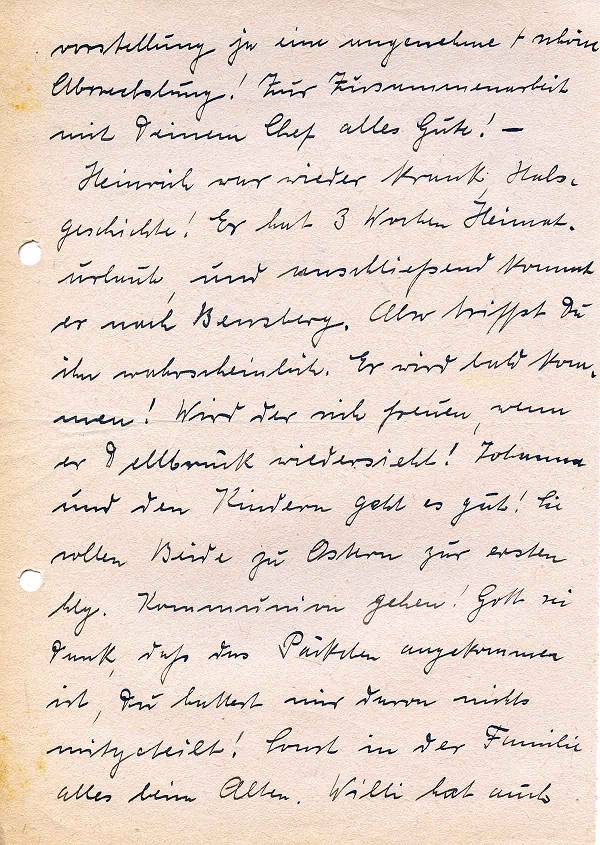 vorstellung ja eine angenehme + schöne
Abwechslung! Zur Zusammenarbeit
mit Deinem Chef alles Gute! —
Heinrich war wieder krank, Hals-
geschichte! Er hat 3 Wochen Heimat-
urlaub, und anschließend kommt
er nach Bensberg. Also triffst Du
ihn wahrscheinlich. Er wird bald kom-
men! Wird der sich freuen, wenn
er Dellbrück wiedersieht! Johanna
und den Kindern geht es gut! Sie
sollen Beide zu Ostern zur ersten
hlg. Kommunion gehen! Gott sei
Dank, daß das Päckchen angekommen
ist, Du hattest mir davon nichts
mitgeteilt! Sonst in der Familie
alles beim Alten. Willi hat auch